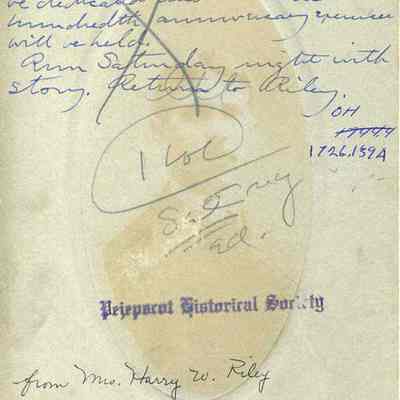 be dedicated
hundredth anniversary exercises
will be held.
Run Saturday night with
story. Return to Riley.
OH
1726.139A
1 col
Pejepscot Historical Society
from Mrs. Harry W. Riley